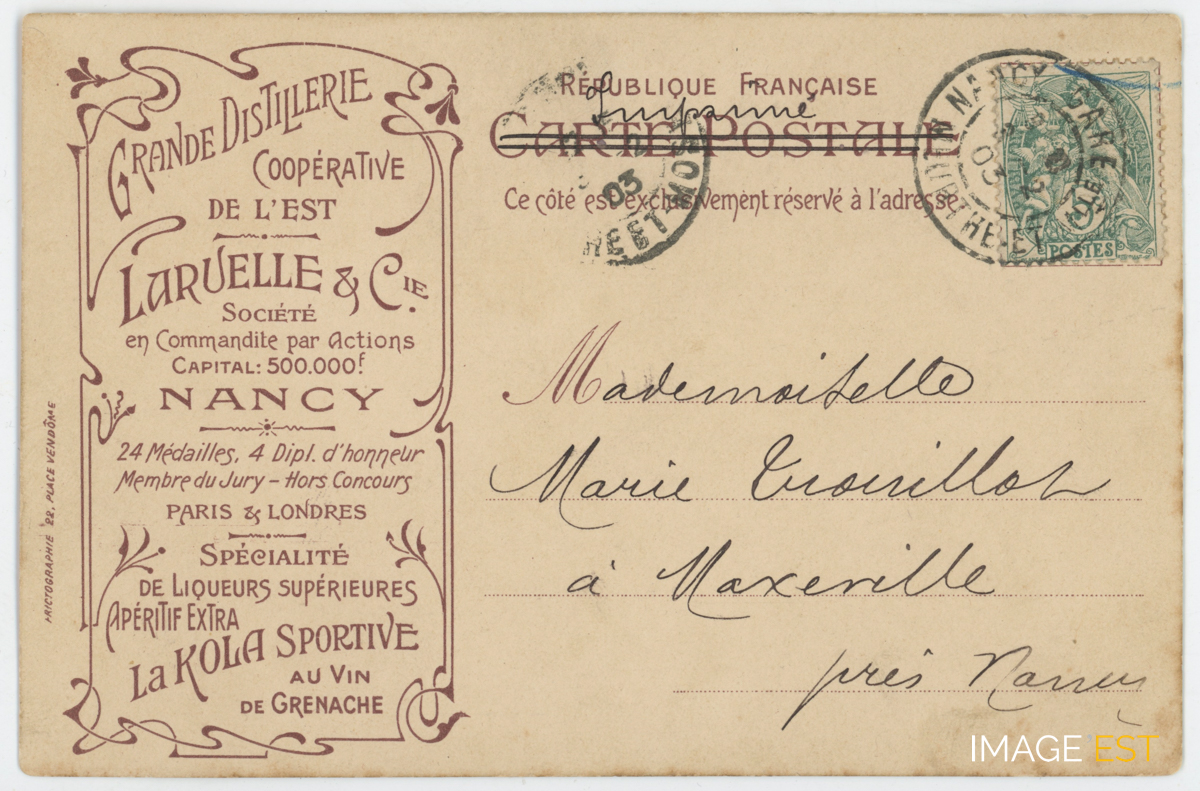 GRANDE DISTILLERIE
COOPÉRATIVE
DE L'EST
LARUELLE & CIE.
SOCIÉTÉ
en Commandite par Actions
CAPITAL: 500.000f.
NANCY
24 Médailles, 4 Dipl. d'honneur
Membre du Jury – Hors Concours
PARIS & LONDRES
SPÉCIALITÉ
DE LIQUEURS SUPÉRIEURES
APÉRITIF EXTRA
La KOLA SPORTIVE
AU VIN
DE GRENACHE
22, PLACE VENDÔME
RÉPUBLIQUE FRANÇAISE
Imprimé
CARTE POSTALE
Ce côté est exclusivement réservé à l'adresse
03
HE ET MOS
NANCY GARE
MEURTHE-ET-
03
5
POSTES
Mademoiselle
Marie Trouillot
à Maxeville
près Nancy
IMAGE EST